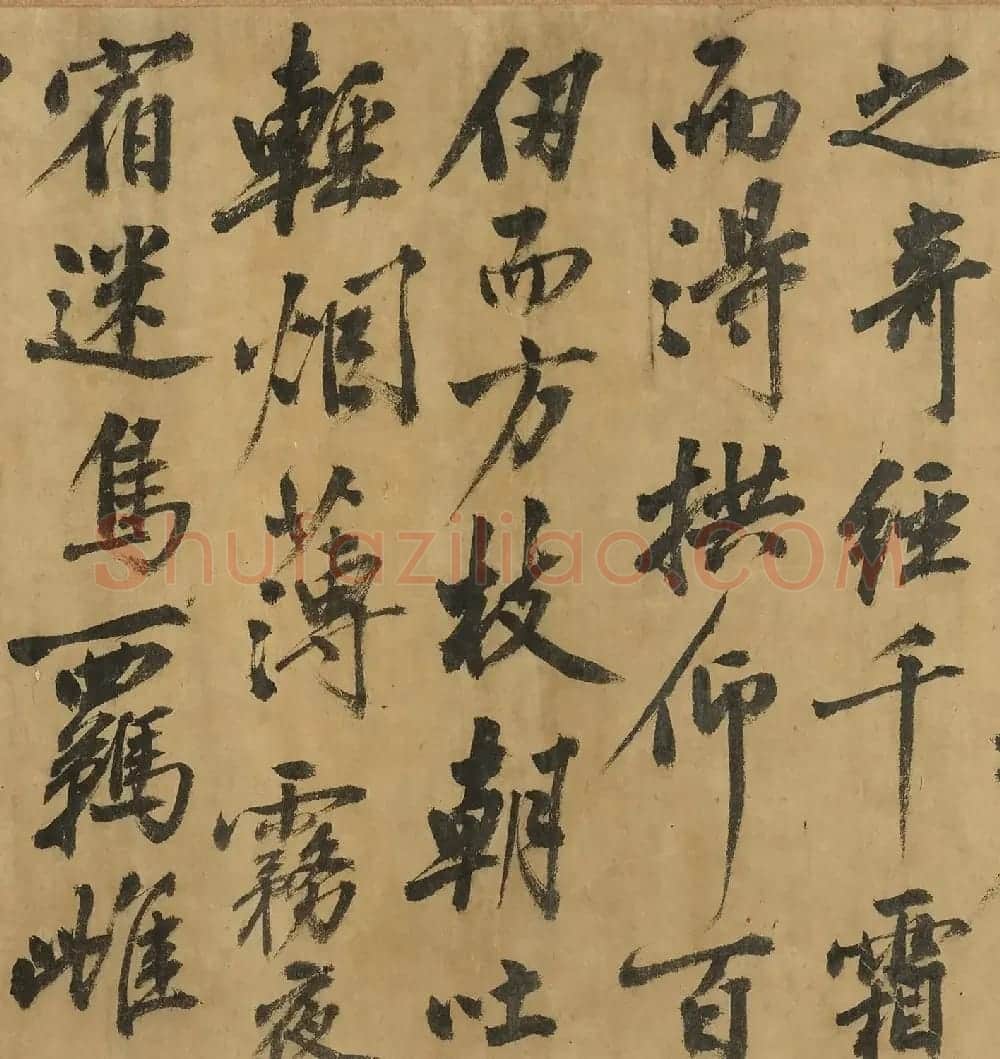 之奇經千霜
而得拱仰百
仞而方枝朝吐
輕烟薄霧夜
宿迷鳥羈雌
Shufaziliao.COM